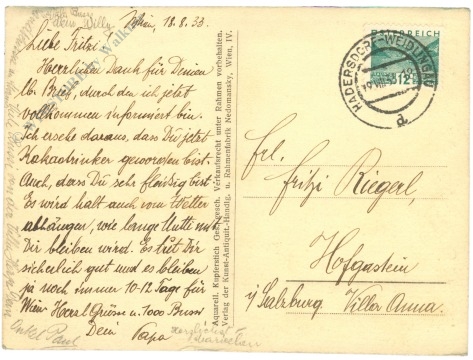 Wien, 18.8.33.
dein Willy
Liebe Fritzi!
Herzlichen Dank für Deinen
lb. Brief, durch den ich jetzt
vollkommen informiert bin.
Ich ersehe daraus, dass Du jetzt
Kakaotrinker geworden bist.
Auch, dass Du sehr fleißig bist.
Es wird halt auch vom Wetter
abhängen, wie lange Mutti mit
Dir bleiben wird. Es tut Dir
sicherlich gut und es bleiben
ja noch immer 10-12 Tage für
Wien. Herzl. Grüsse u. 1000 Bussi
Dein Papa
Onkel Paul
herzlichst
Aquarell. Kupferstich Ges. gesch. Verkaufsrecht unter Rahmen vorbehalten.
Verlag der Kunst-Antiquit.-Handlg. u. Rahmenfabrik Nedomansky, Wien, IV.
ÖSTERREICH
12
HADERSDORF-WEIDLINGAU
19.VIII.33
d
Frl.
Fritzi Riegerl,
Hofgastein
b/Salzburg Villa Anna.